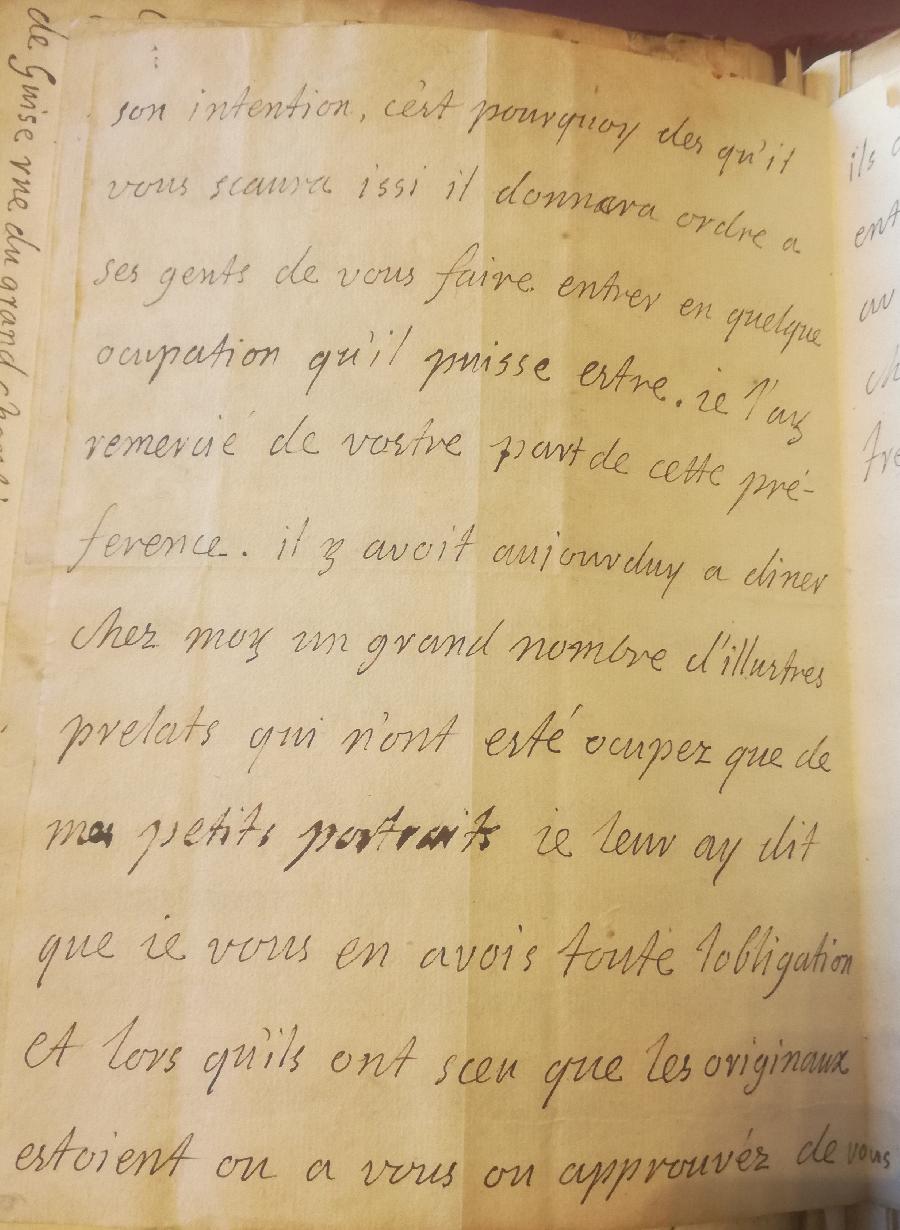 de Guise rue du grand
son intention, c'est pourquoy des qu'il
vous scaura issi il donnera ordre a
ses gents de vous faire entrer en quelque
ocupation qu'il puisse estre. ie l'ay
remercié de vostre part de cette pré-
ference. il y avoit aujourduy a diner
chez moy un grand nombre d'illustres
prelats qui n'ont esté ocupez que de
mes petits portraits ie leur ay dit
que ie vous en avois toute lobligation
et lors qu'ils ont sceu que les originaux
estoient ou a vous ou approuvéz de vous
ils
ent